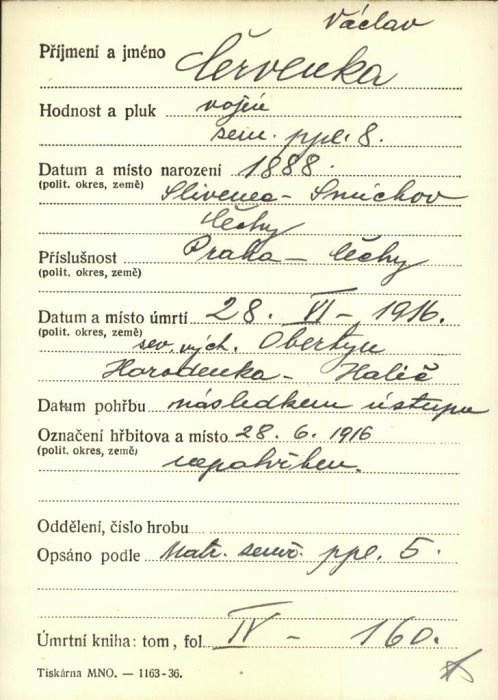 Václav
Příjmení a jméno Červenka
Hodnost a pluk vojín
zem. ppl. 8.
Datum a místo narození 1888.
(polit. okres, země) Slivenec - Smíchov
Čechy
Příslušnost Praha - Čechy
(polit. okres, země)
Datum a místo úmrtí 28. VI - 1916.
(polit. okres, země) sev. vých. Obertyn
Horodenka - Halič
Datum pohřbu následkem ústupu
Označení hřbitova a místo 28. 6. 1916
(polit. okres, země) nepohřben.
Oddělení, číslo hrobu
Opsáno podle Matr. zem. ppl. 5.
Úmrtní kniha: tom, fol. IV - 160.
Tiskárna MNO. — 1163-36.